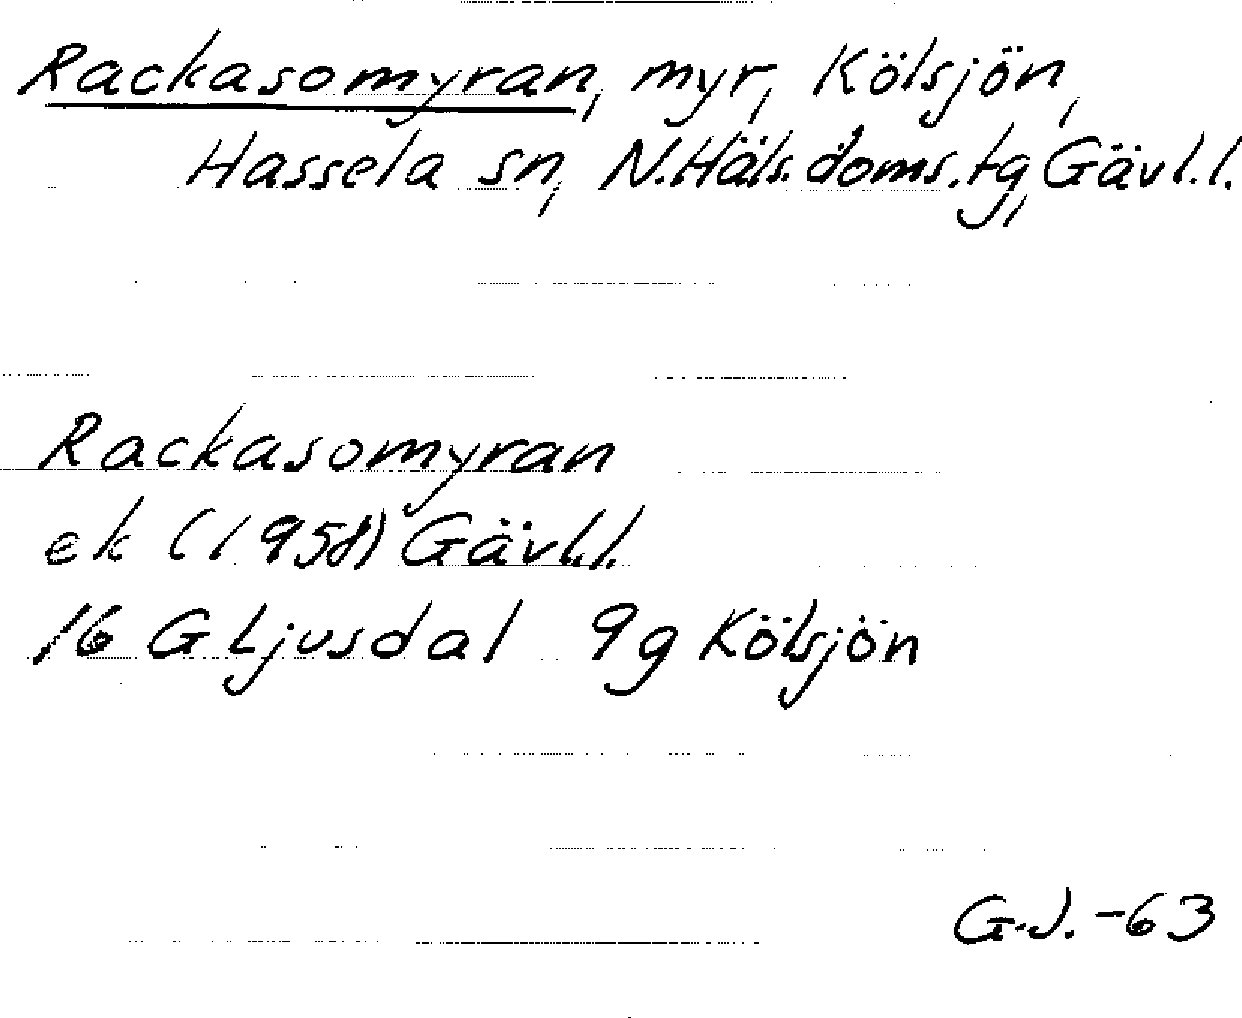 Rackasomyran, myr, Kölsjön,
Hassela sn, N.Häls.doms.tg, Gävl.l.
Rackasomyran
ek (1958) Gävl.l.
16 G Ljusdal 9g Kölsjön
G.J. -63